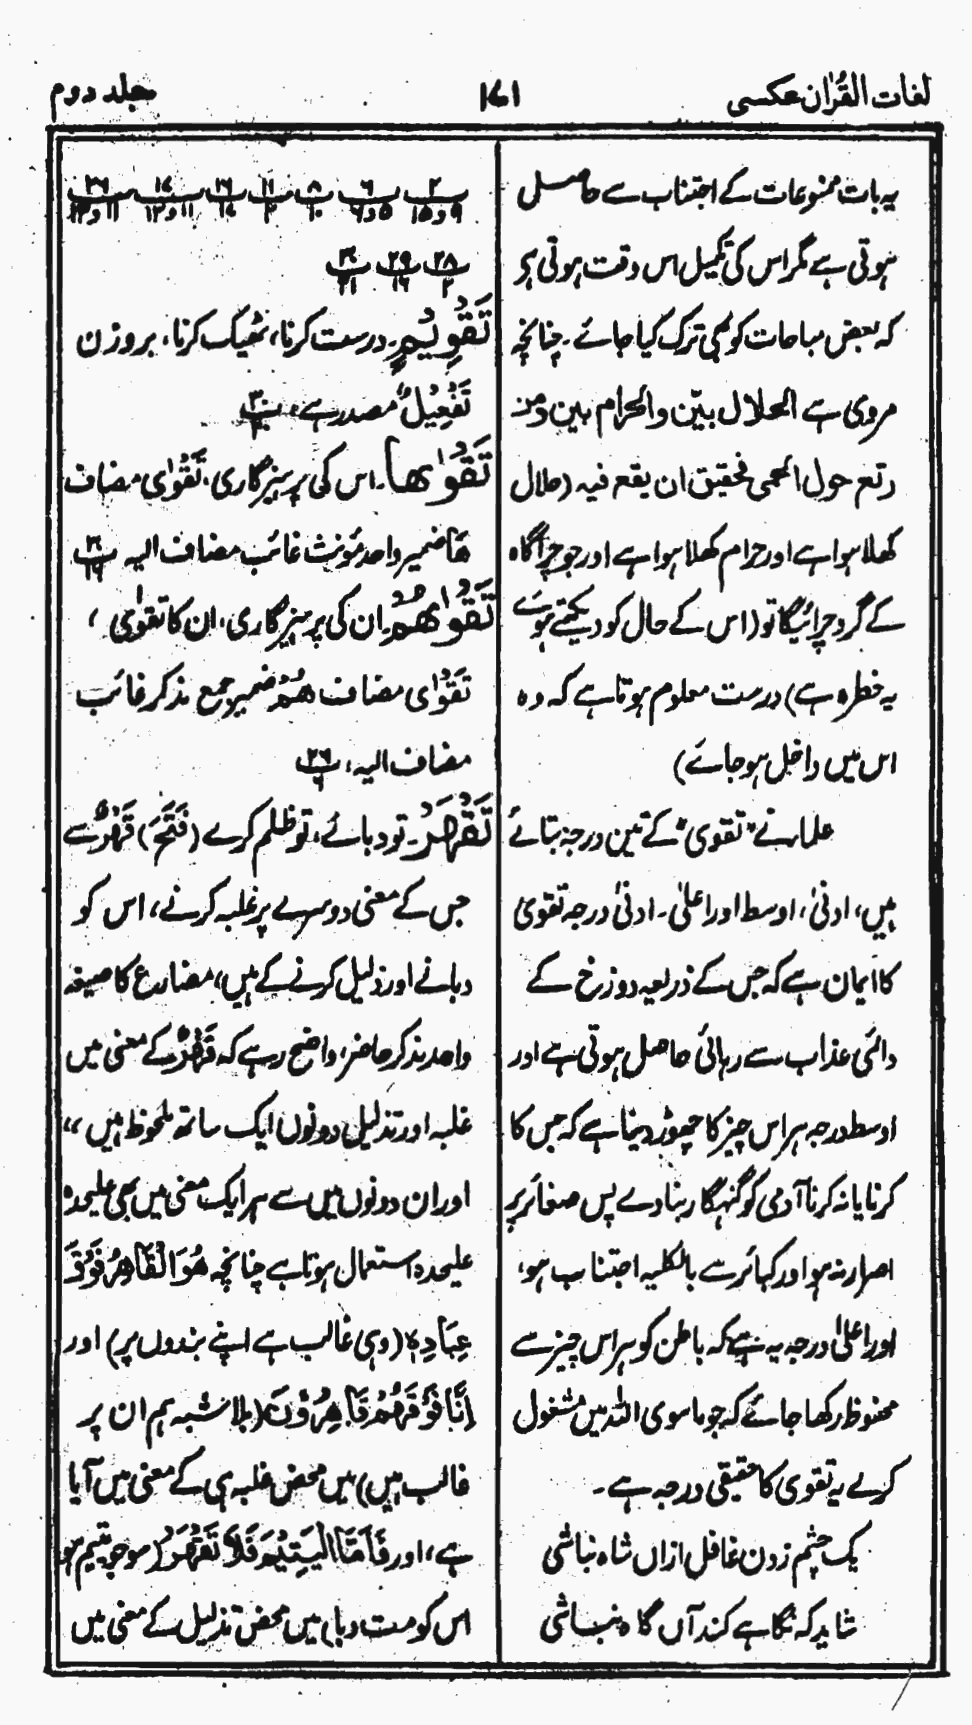 لغات القرآن عکسی
۱۷۱
جلد دوم
یہ بات ممنوعات کے اجتناب سے حاصل
ہوتی ہے مگر اس کی تکمیل اس وقت ہوتی ہے کہ
کہ بعض مباحات کو بھی ترک کیا جائے۔ چنانچہ
مروی ہے الحلال بیّن والحرام بین ومن
رتع حول الحمی فحقیق ان یقع فیہ (حلال
کھلا ہوا ہے اور حرام کھلا ہوا ہے اور جو چراگاہ
کے گرد چرائیگا تو (اس کے حال کو دیکھتے ہوئے
یہ خطرہ ہے) درست معلوم ہوتا ہے کہ وہ
اس میں داخل ہو جائے)
علماء نے "تقوی" کے تین درجہ بتائے
ہیں، ادنیٰ، اوسط اور اعلیٰ۔ ادنیٰ درجہ تقویٰ
کا ایمان ہے کہ جس کے ذریعہ دوزخ کے
دائمی عذاب سے رہائی حاصل ہوتی ہے اور
اوسط درجہ ہر اس چیز کا چھوڑ دینا ہے کہ جس کا
کرنا یا نہ کرنا آدمی کو گنہگار بنا دے پس صغائر پر
اصرار نہ ہو اور کبائر سے بالکلیہ اجتناب ہو،
اور اعلیٰ درجہ یہ ہے کہ باطن کو ہر اس چیز سے
محفوظ رکھا جائے کہ جو ماسوی اللہ میں مشغول
کرے یہ تقوی کا حقیقی درجہ ہے۔
یک چشم زدن غافل ازاں شاہ نباشی
شاید کہ نگاہے کند آں گاہ نباشی
۲ ۶ ۸ ۱۱ ۱۶ ۱۷ ۲۶
۹ و ۱۵ ۵ و ۶ ۱۰ ۲ ۱۷ ۱۱ و ۱۲ ۱۱ و ۱۲
۲۸ ۲۹ ۳۰
۲ ۱۶ ۲۱
تَقْوِیْمٍ۔ درست کرنا، ٹھیک کرنا، بروزن
تَفْعِیْلٌ مصدر ہے، ۳۰
تَقْوٰىهَا۔ اس کی پرہیزگاری، تَقْوٰی مضاف
هَا ضمیر واحد مؤنث غائب مضاف الیہ ۳۰ ۱۶
تَقْوٰىهُمْ۔ ان کی پرہیزگاری، ان کا تقویٰ،
تَقْوٰی مضاف هُمْ ضمیر جمع مذکر غائب
مضاف الیہ، ۲۶ ۶
تَقْهَرْ۔ تو دبائے، تو ظلم کرے (فَتَحَ) قَهْرٌ سے
جس کے معنی دوسرے پر غلبہ کرنے، اس کو
دبانے اور ذلیل کرنے کے ہیں، مضارع کا صیغہ
واحد مذکر حاضر، واضح رہے کہ قَهْرٌ کے معنی میں
غلبہ اور تذلیل دونوں ایک ساتھ ملحوظ ہیں،،
اور ان دونوں میں سے ہر ایک معنی میں بھی علیحدہ
علیحدہ استعمال ہوتا ہے چنانچہ هُوَ الْقَاهِرُ فَوْقَ
عِبَادِهٖ (وہی غالب ہے اپنے بندوں پر) اور
اِنَّا فَوْقَهُمْ قَاهِرُوْنَ (بلا شبہ ہم ان پر
غالب ہیں) میں محض غلبہ ہی کے معنی میں آیا
ہے، اور فَاَمَّا الْیَتِیْمَ فَلَا تَقْهَرْ (سو جو یتیم ہو
اس کو مت دبا) میں محض تذلیل کے معنی میں